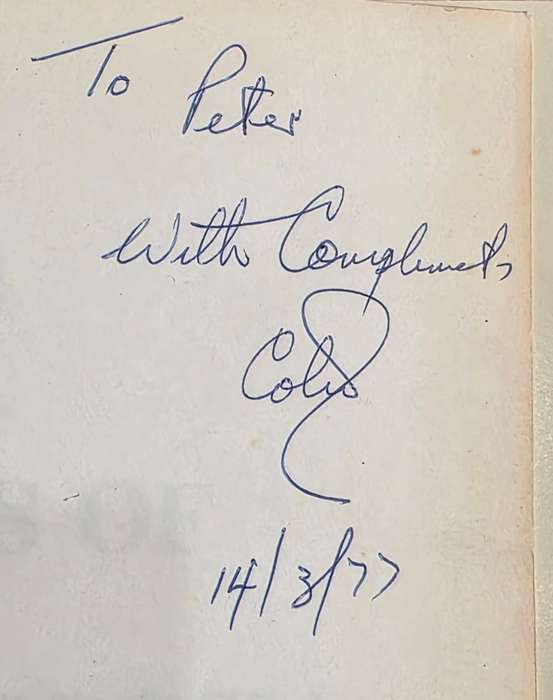 To Peter
With Compliments
Colin
14/3/77